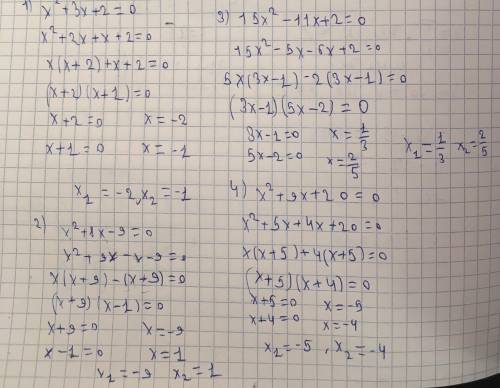 1) x² + 3x + 2 = 0
x² + 2x + x + 2 = 0
x(x + 2) + x + 2 = 0
(x + 2)(x + 1) = 0
x + 2 = 0 x = -2
x + 1 = 0 x = -1
x₁ = -2, x₂ = -1
2)
x² + 8x - 9 = 0
x² + 9x - x - 9 = 0
x(x + 9) - (x + 9) = 0
(x + 9)(x - 1) = 0
x + 9 = 0 x = -9
x - 1 = 0 x = 1
x₁ = -9 x₂ = 1
3) 15x² - 11x + 2 = 0
15x² - 5x - 6x + 2 = 0
5x(3x - 1) - 2(3x - 1) = 0
(3x - 1)(5x - 2) = 0
3x - 1 = 0 x = 1/3
5x - 2 = 0 x = 2/5
x₁ = 1/3 x₂ = 2/5
4) x² + 9x + 20 = 0
x² + 5x + 4x + 20 = 0
x(x + 5) + 4(x + 5) = 0
(x + 5)(x + 4) = 0
x + 5 = 0 x = -5
x + 4 = 0 x = -4
x₁ = -5, x₂ = -4